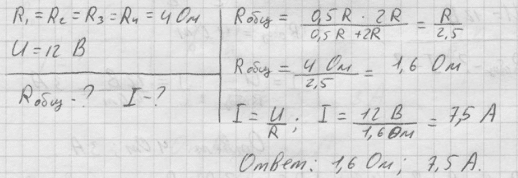 R₁ = R₂ = R₃ = R₄ = 4 Ом
U = 12 В
Rобщ - ? I - ?
Rобщ = 0,5 R · 2R / 0,5 R + 2R = R / 2,5
Rобщ = 4 Ом / 2,5 = 1,6 Ом
I = U / R ; I = 12 В / 1,6 Ом = 7,5 А
Ответ: 1,6 Ом; 7,5 А.